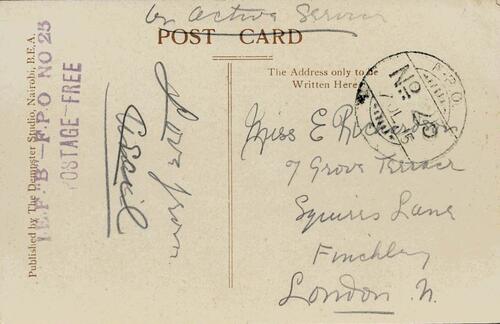 on Active Service
POST CARD
The Address only to be
Written Here
Published by The Dempster Studio, Nairobi, B.E.A.
I.E.F. "B" - F.P.O NO 25
POSTAGE-FREE
Love from
No. 25
Miss E
7 Grove Terrace
Squires Lane
Finchley
London N.